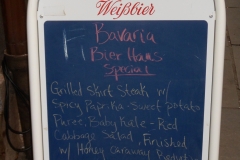 Weißbier
Bavaria
Bier Haus
Special
Grilled Skirt Steak w/
Spicy Paprika - Sweet Potato
Puree, Baby Kale - Red
Cabbage Salad - Finished
w/ Honey Caraway